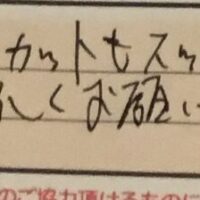 カットもスッ
しくお願い
のご協力頂けるものに